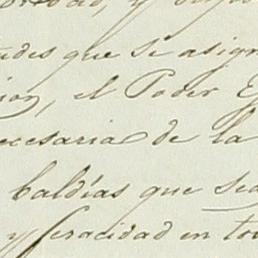 des que se asign
ion, el Poder E
ecesaria de la
baldías que sea
y feracidad en to